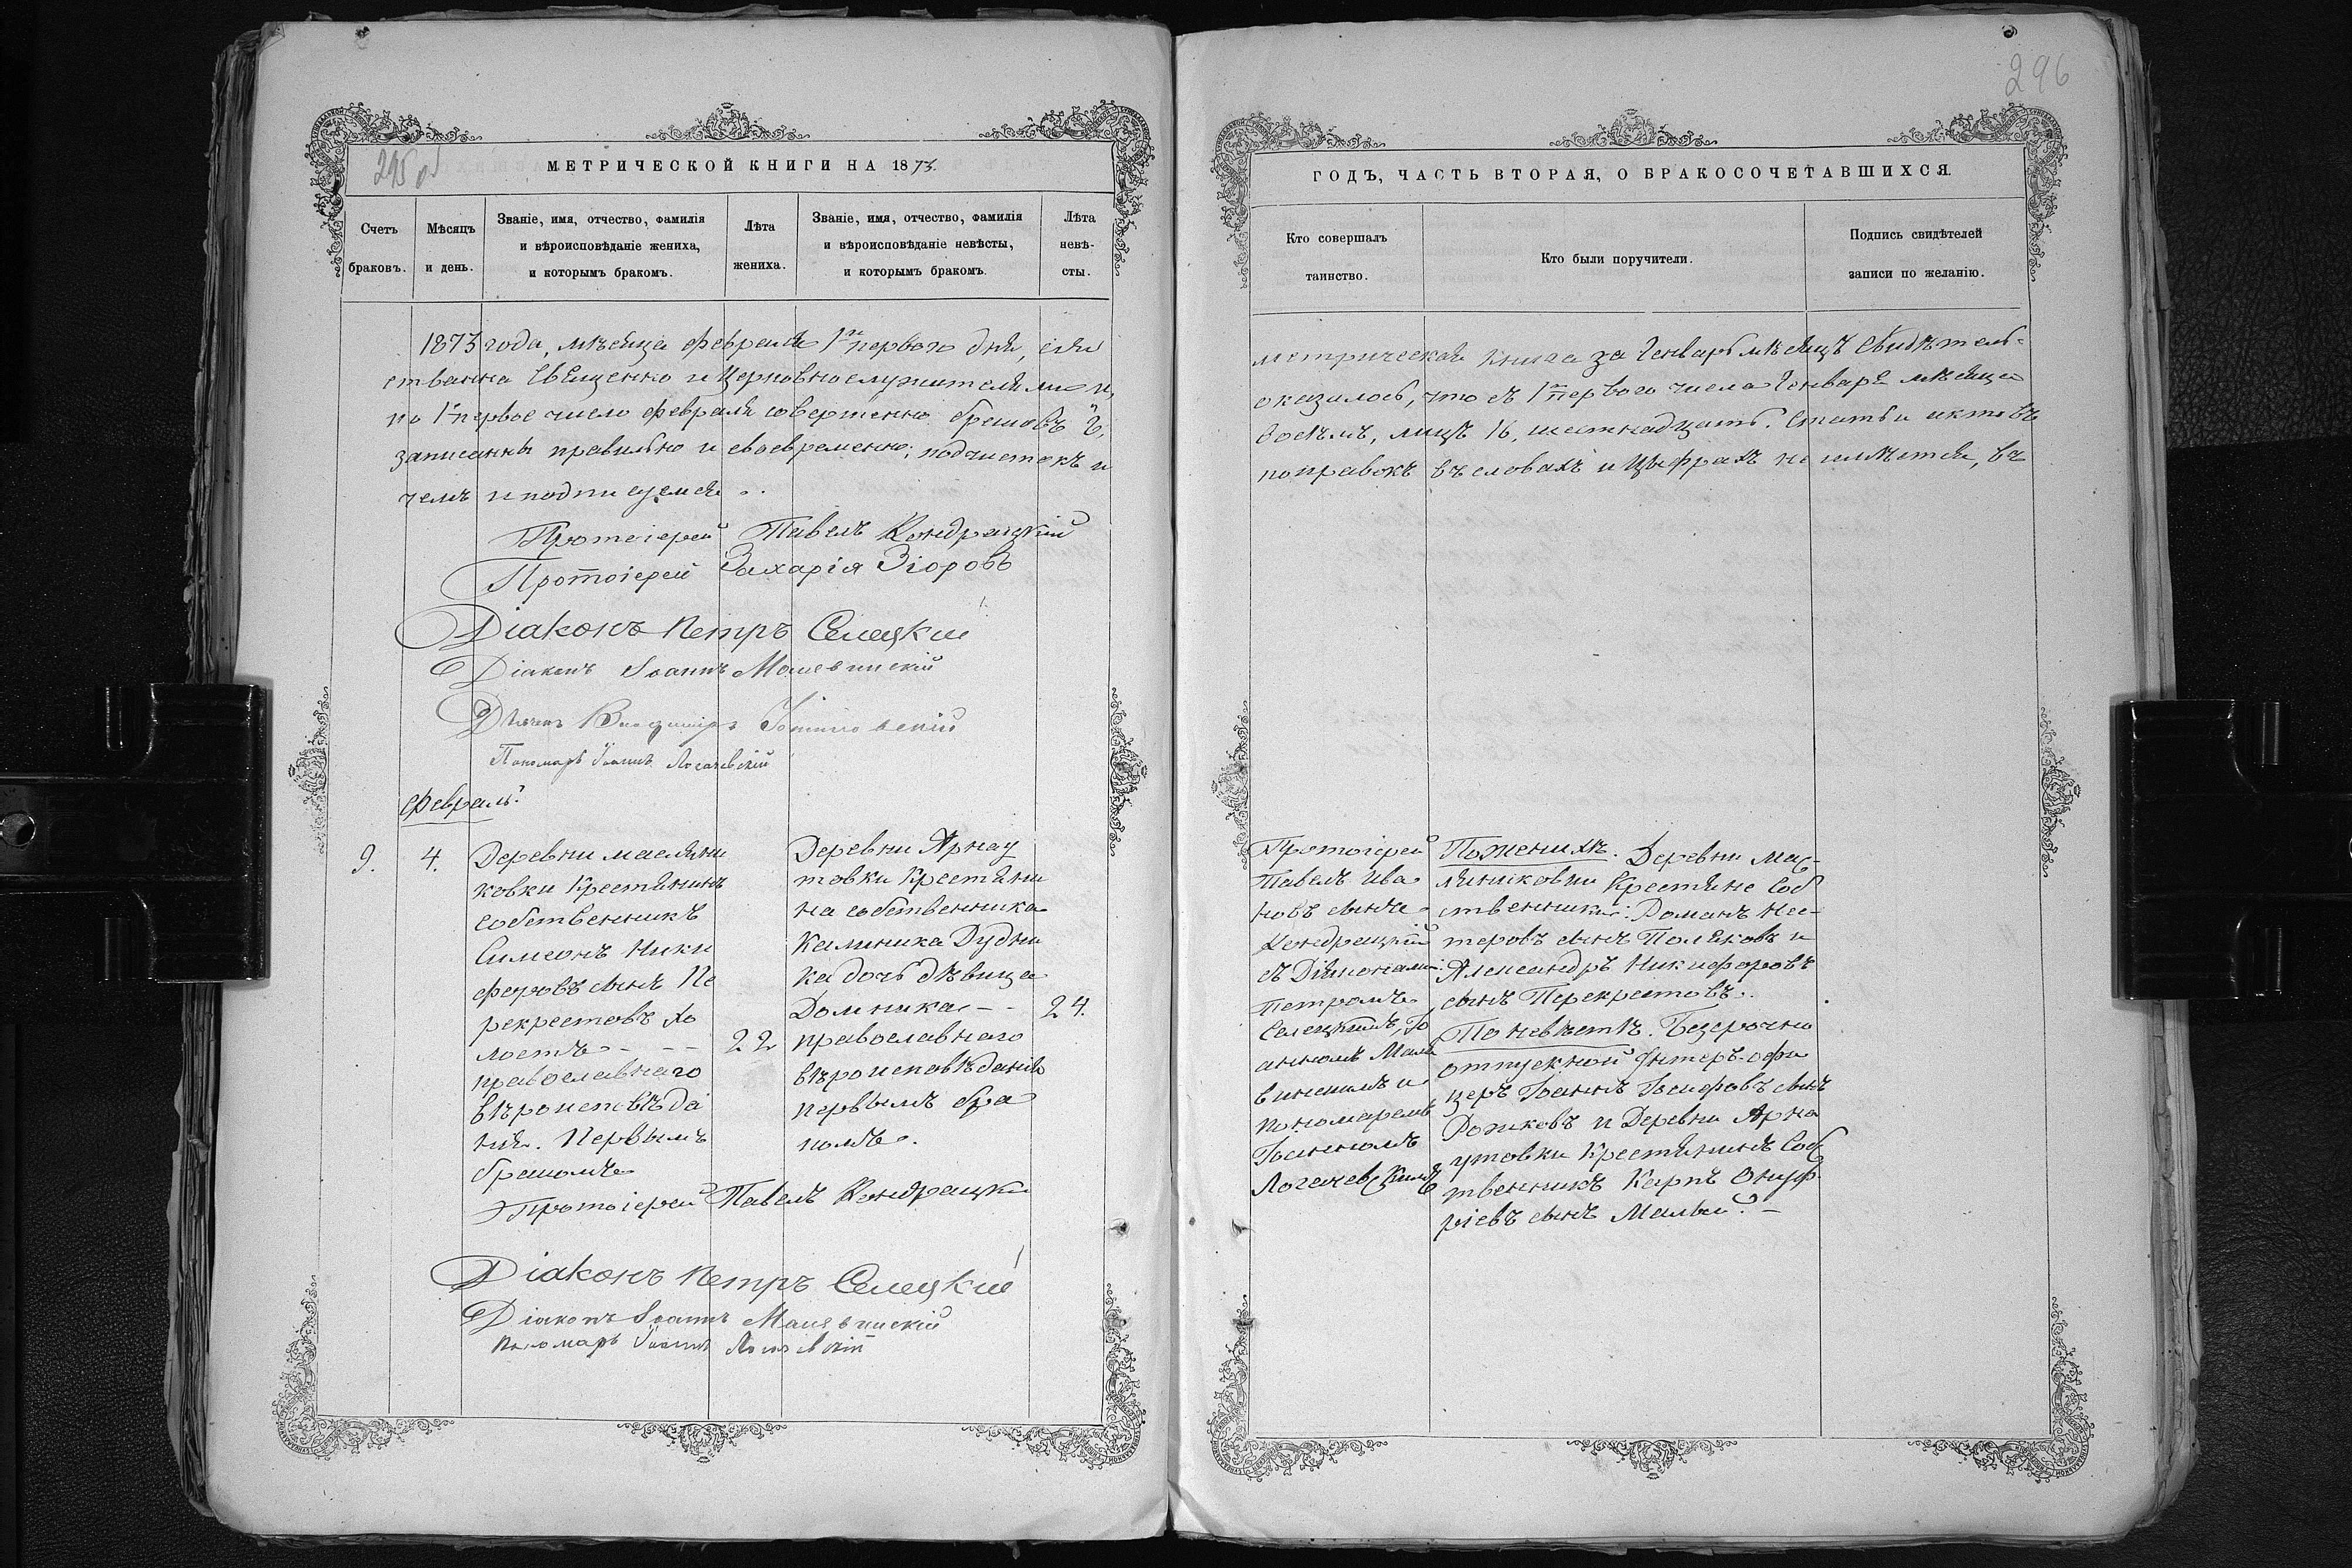 295 об
МЕТРИЧЕСКОЙ КНИГИ НА 1873.
Счетъ
браковъ.
Мѣсяцъ
и день.
Званіе, имя, отчество, фамилія
и вѣроисповѣданіе жениха,
и которымъ бракомъ.
Лѣта
жениха.
Званіе, имя, отчество, фамилія
и вѣроисповѣданіе невѣсты,
и которымъ бракомъ.
Лѣта
невѣ-
сты.
1873 года, мѣсяца февраля 1го перваго дня, сія
ственна Священно и Церковнослужителями и,
по 1е первое число февраля совершенно браковъ 8,
записанны правильно и своевременно; подчистокъ и
чемъ и подписуемся.
Протоіерей Павелъ Кондрацкій
Протоіерей Захарія Зіоровъ
Діаконъ Петръ Селецкій
Діаконъ Іоаннъ Малявинскій
Дьячекъ Владиміръ
Пономарь Іоаннъ Логачевскій
Февраль.
9.
4.
Деревни масляни
ковки Крестянинъ
собственникъ
Симеонъ Ники
форовъ сынъ Пе
рекрестовъ хо
лостъ - - -
православнаго
вѣроисповѣда
нія. Первымъ
бракомъ
22
Деревни Арнау
товки Крестяни
на собственника
Калиника Дудни
ка дочь дѣвица
Домника - -
православнаго
вѣроисповѣданія
первымъ бра
комъ.
24.
Протоіерей Павелъ Кондрацкій
Діаконъ Петръ Селецкій
Діаконъ Іоаннъ Малявинскій
Пономарь Іоаннъ Логачевскій
296
ГОДЪ, ЧАСТЬ ВТОРАЯ, О БРАКОСОЧЕТАВШИХСЯ.
Кто совершалъ
таинство.
Кто были поручители.
Подпись свидѣтелей
записи по желанію.
метрическая книга за Генварь мѣсяцъ свидѣтель-
оказалось, что съ 1го перваго числа Генваря мѣсяца
восемъ, лицъ 16, шестнадцать. Статьи актовъ
поправокъ въ словахъ и цыфрахъ не имѣется, въ
Протоіерей
Павелъ Ива
новъ сынъ
Кондрацкій
съ Діаконами
Петромъ
Селецкимъ, Іо
анномъ Маля
винскимъ и
пономаремъ
Іоанномъ
Логачевскимъ
По женихѣ. Деревни Мас-
лянинковки Крестяне Соб
ственники: Романъ Нес-
теровъ сынъ Поляковъ и
Александръ Никифоровъ
сынъ Перекрестовъ.
По невѣстѣ. Безсрочно
отпускной Унтеръ-офи
церъ Іоаннъ Іосифовъ сынъ
Рожковъ и Деревни Арна
утовки Крестянинъ Соб
твенникъ Карпъ Онуф
ріевъ сынъ Малый. -